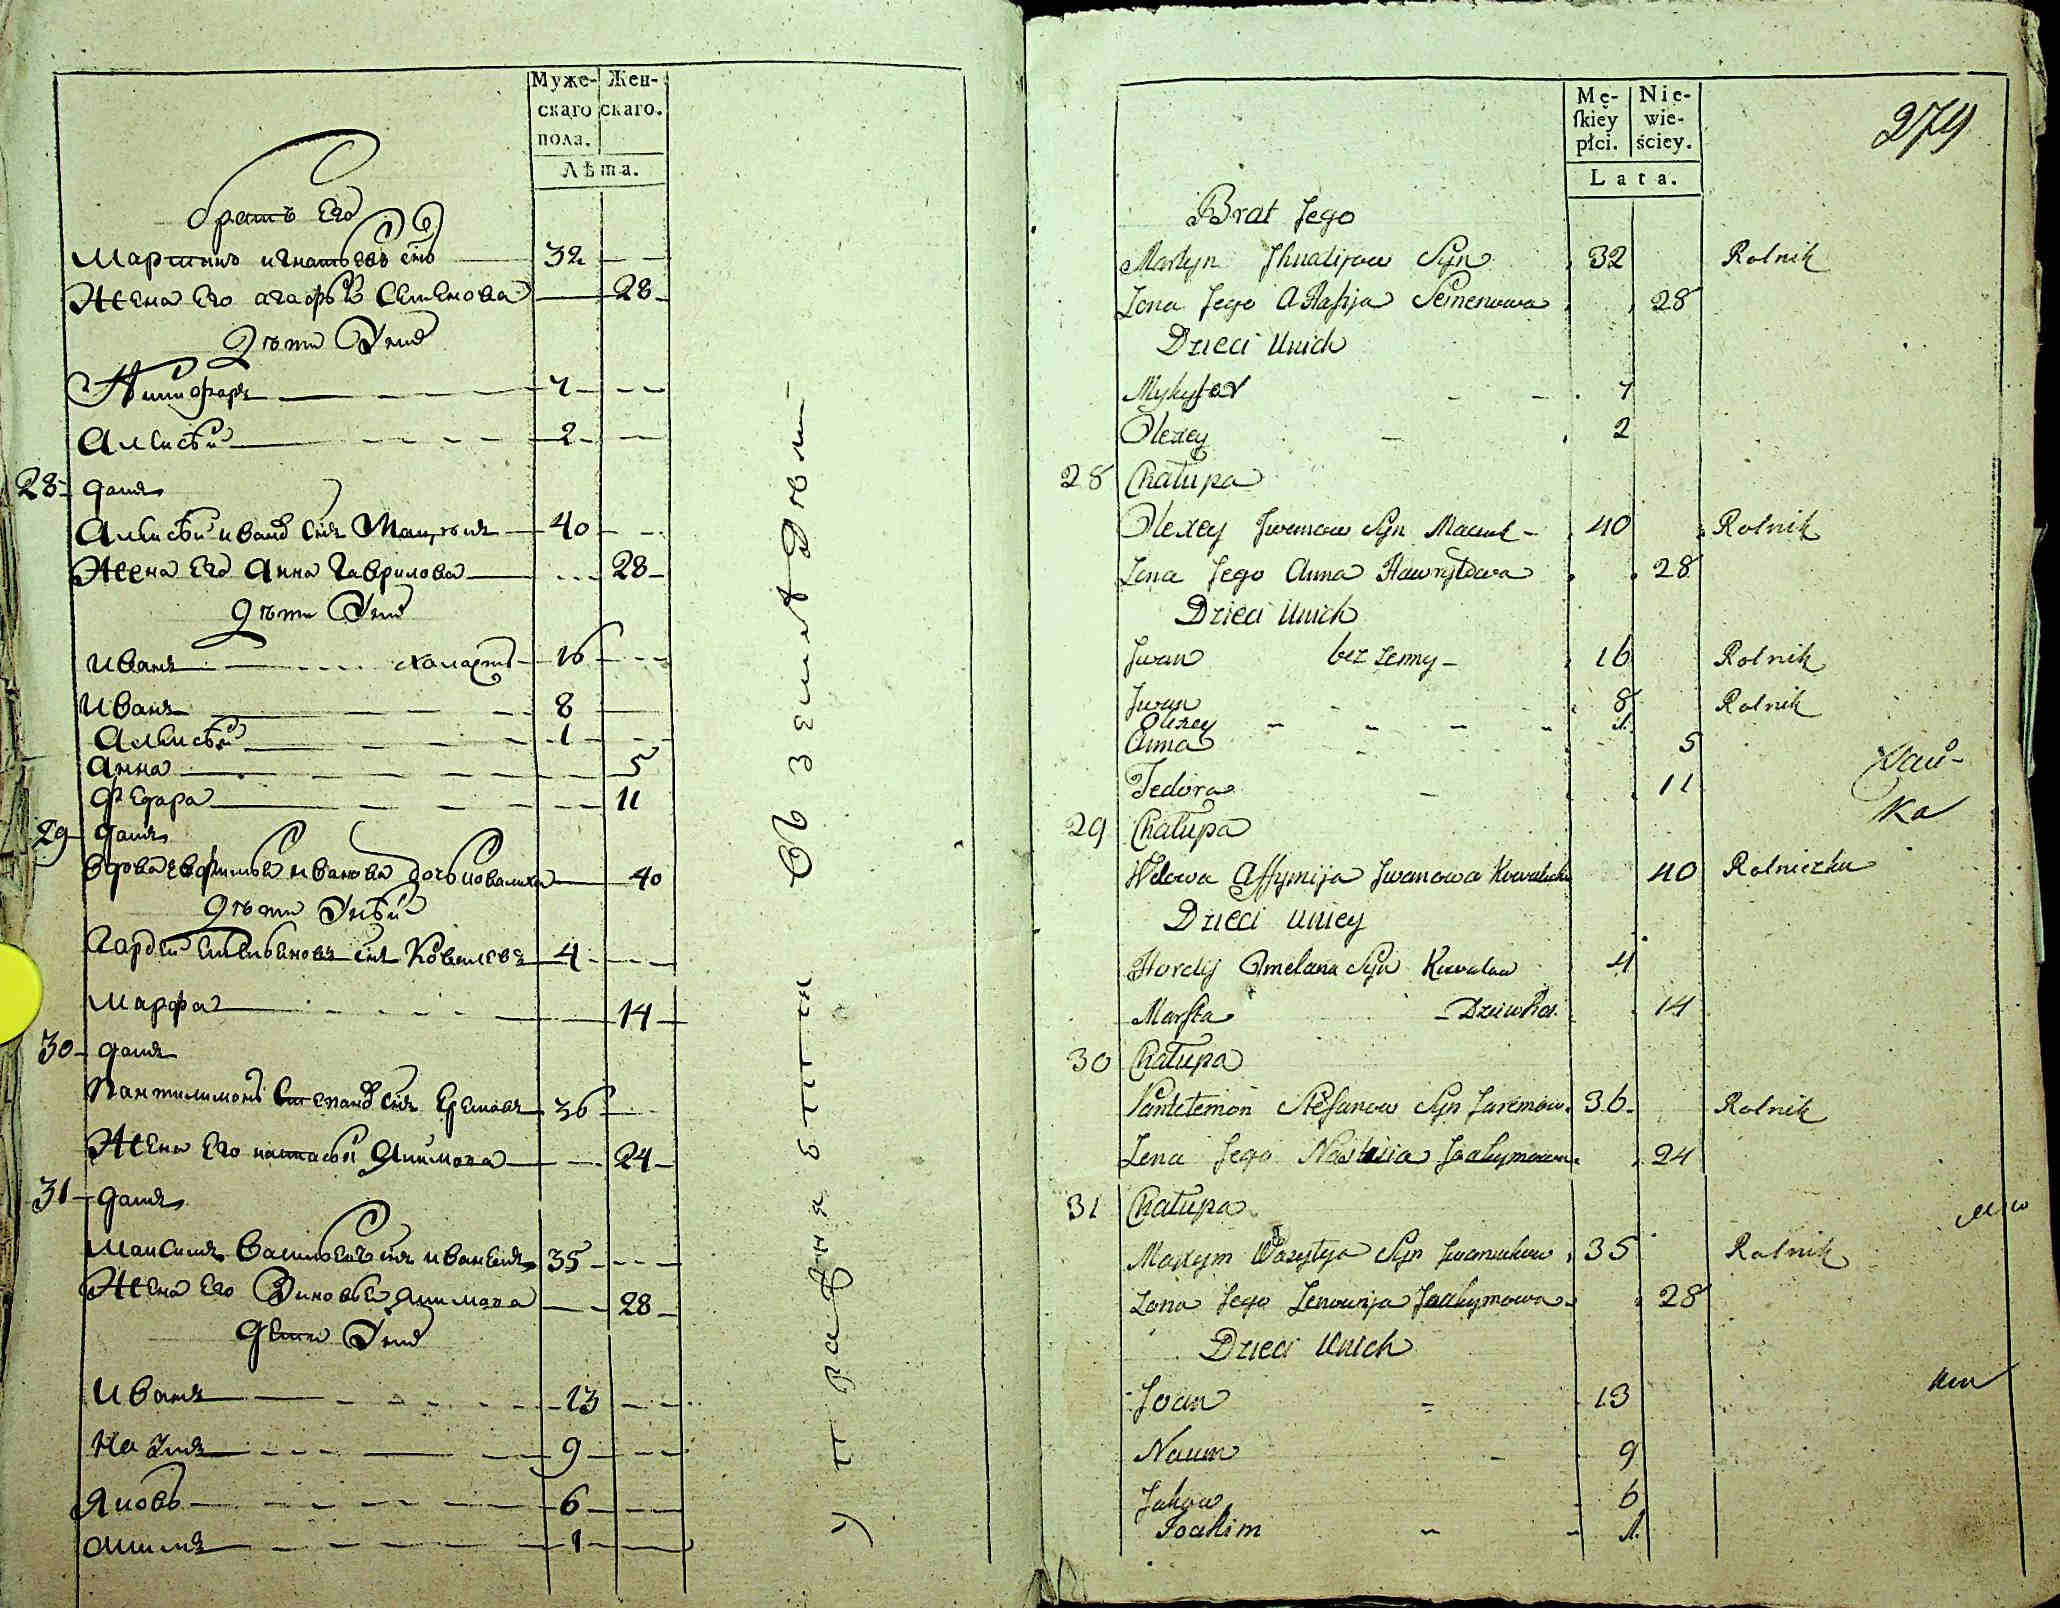 Муже-
скаго
пола.
Жен-
скаго.
Лѣта.
братъ его
мартинъ игнатьевъ снъ 32
жена его агафья семенова 28
дѣти у нихъ
никифоръ 7
алексѣй 2
28 домъ
алексѣй иванов снъ 40
жена его анна гаврилова 28
дѣти у нихъ
иванъ холостъ 16
иванъ 8
алексѣй 1
анна 5
федора 11
29 домъ
вдова евфимья иванова дочь ковалиха 40
дѣти у ней
гордѣй емельяновъ снъ ковалевъ 4
марфа 14
30 домъ
пантилимонъ степанов снъ еремовъ 36
жена его настасья якимова 24
31 домъ
максимъ васильевъ снъ 35
жена его зиновья якимова 28
дети у нихъ
иванъ 13
наумъ 9
яковъ 6
акимъ 1
Mę-
skiey
płci.
Nie-
wie-
ściey.
Lata.
279
Brat Jego
Martyn Ihnatijow Syn 32 Rolnik
Żona Jego Ahafija Semenowa 28
Dzieci Unich
Mykyfor 7
Olexey 2
28 Chałupa
Olexey Iwanow Syn 40 Rolnik
Żona Jego Anna Hawryłowa 28
Dzieci Unich
Iwan bez żenny 16 Rolnik
Iwan 8 Rolnik
Olexey 1
Anna 5
Fedora 11
29 Chałupa
Wdowa Affymija Iwanowa Kowalicha 40 Rolniczka
Dzieci Uniey
Hordij Omelana Syn Kowalow 4
Marfta Dziewka 14
30 Chałupa
Pantelemon Stefanow Syn Jaremow 36 Rolnik
Żena Jego Nastasia Joakymowa 24
31 Chałupa
Maxym Wasylya Syn Iwaniukow 35 Rolnik
Żona Jego Zenowija Joakymowa 28
Dzieci Unich
Iwan 13
Naum 9
Jakow 6
Joakim 1